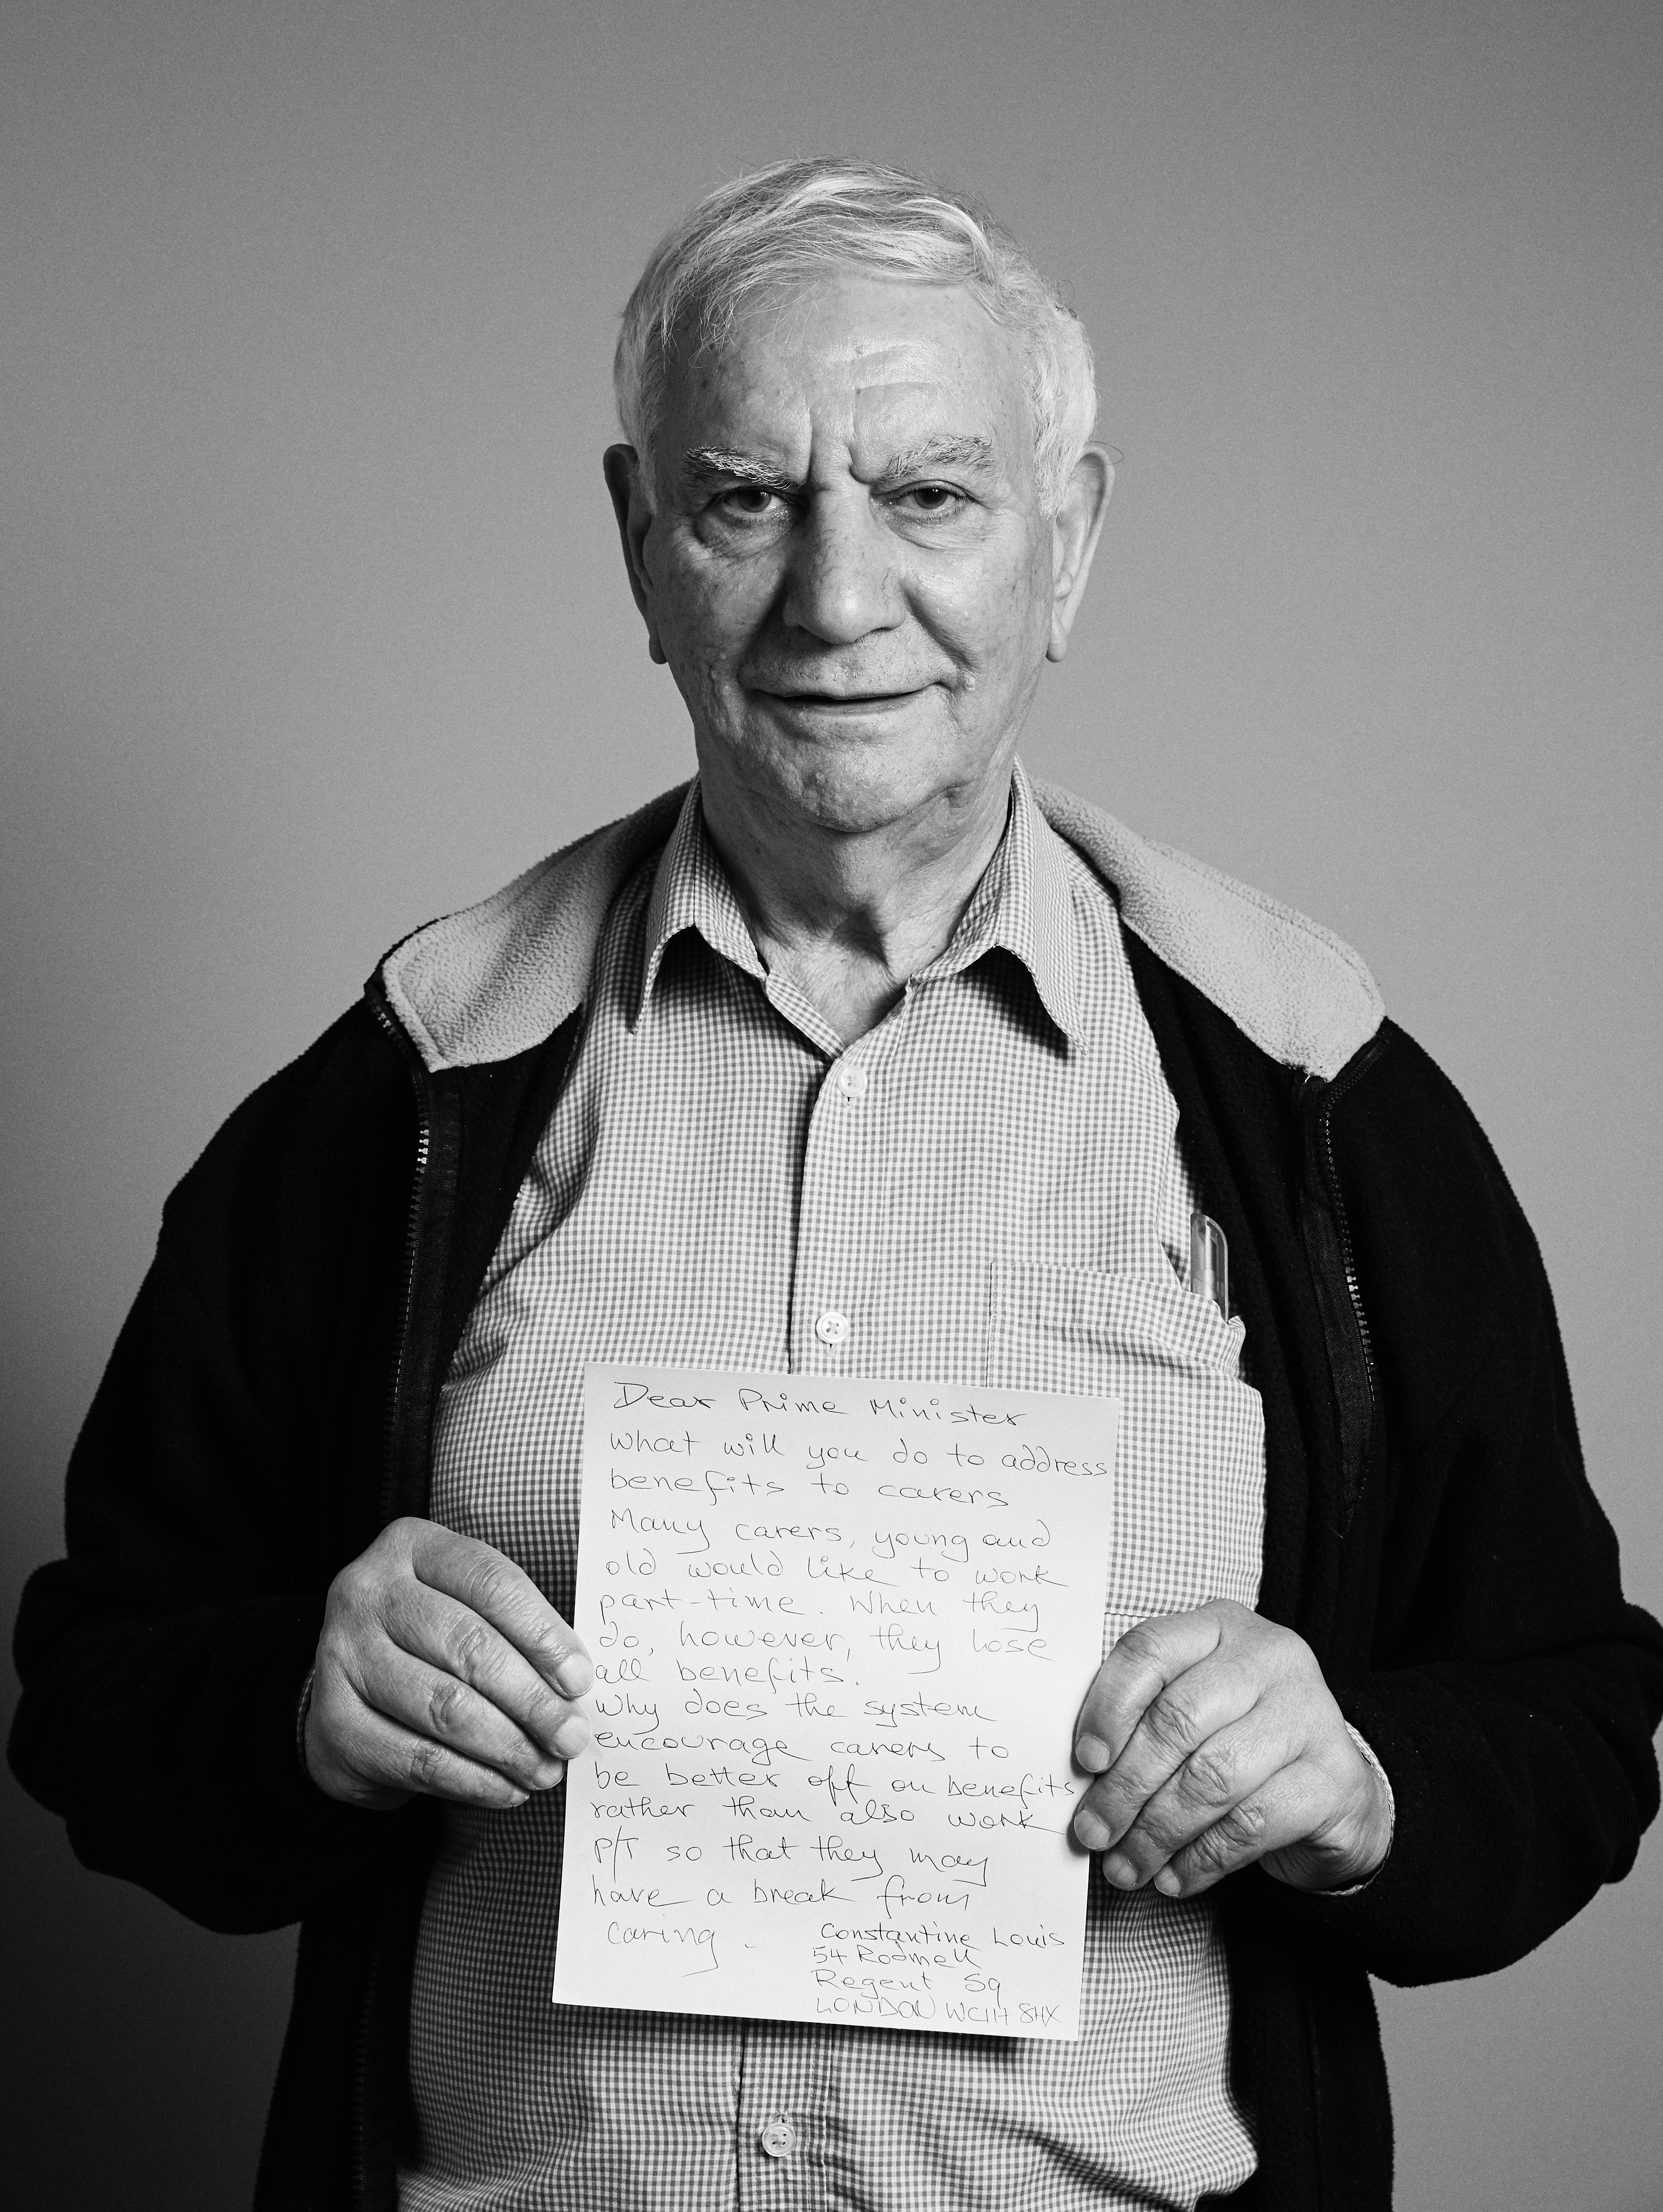 Dear Prime Minister
What will you do to address
benefits to carers
Many carers, young and
old would like to work
part-time. When they
do, however, they lose
all benefits.
Why does the system
encourage carers to
be better off on benefits
rather than also work
P/T so that they may
have a break from
caring.
Constantine Louis
54 Rodmell
Regent Sq
LONDON WC1H 8HX